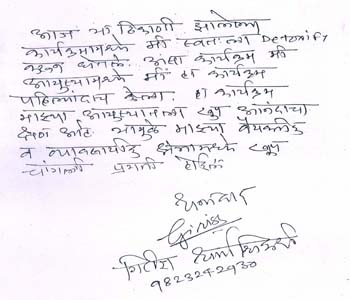 आज या ठिकाणी झालेल्या
कार्यक्रमामध्ये मी स्वतःला Detoxify
करुन घेतले. असा कार्यक्रम मी
आयुष्यामध्ये मी हा कार्यक्रम
पहिल्यांदाच केला. हा कार्यक्रम
माझ्या आयुष्यातला खुप आनंदाचा
क्षण आहे. यामुळे माझ्या वैयक्तीक
व व्यावसायीक क्षेत्रामध्ये खुप
चांगली प्रगती होईल
धन्यवाद
Girish
गिरीश
9823242930